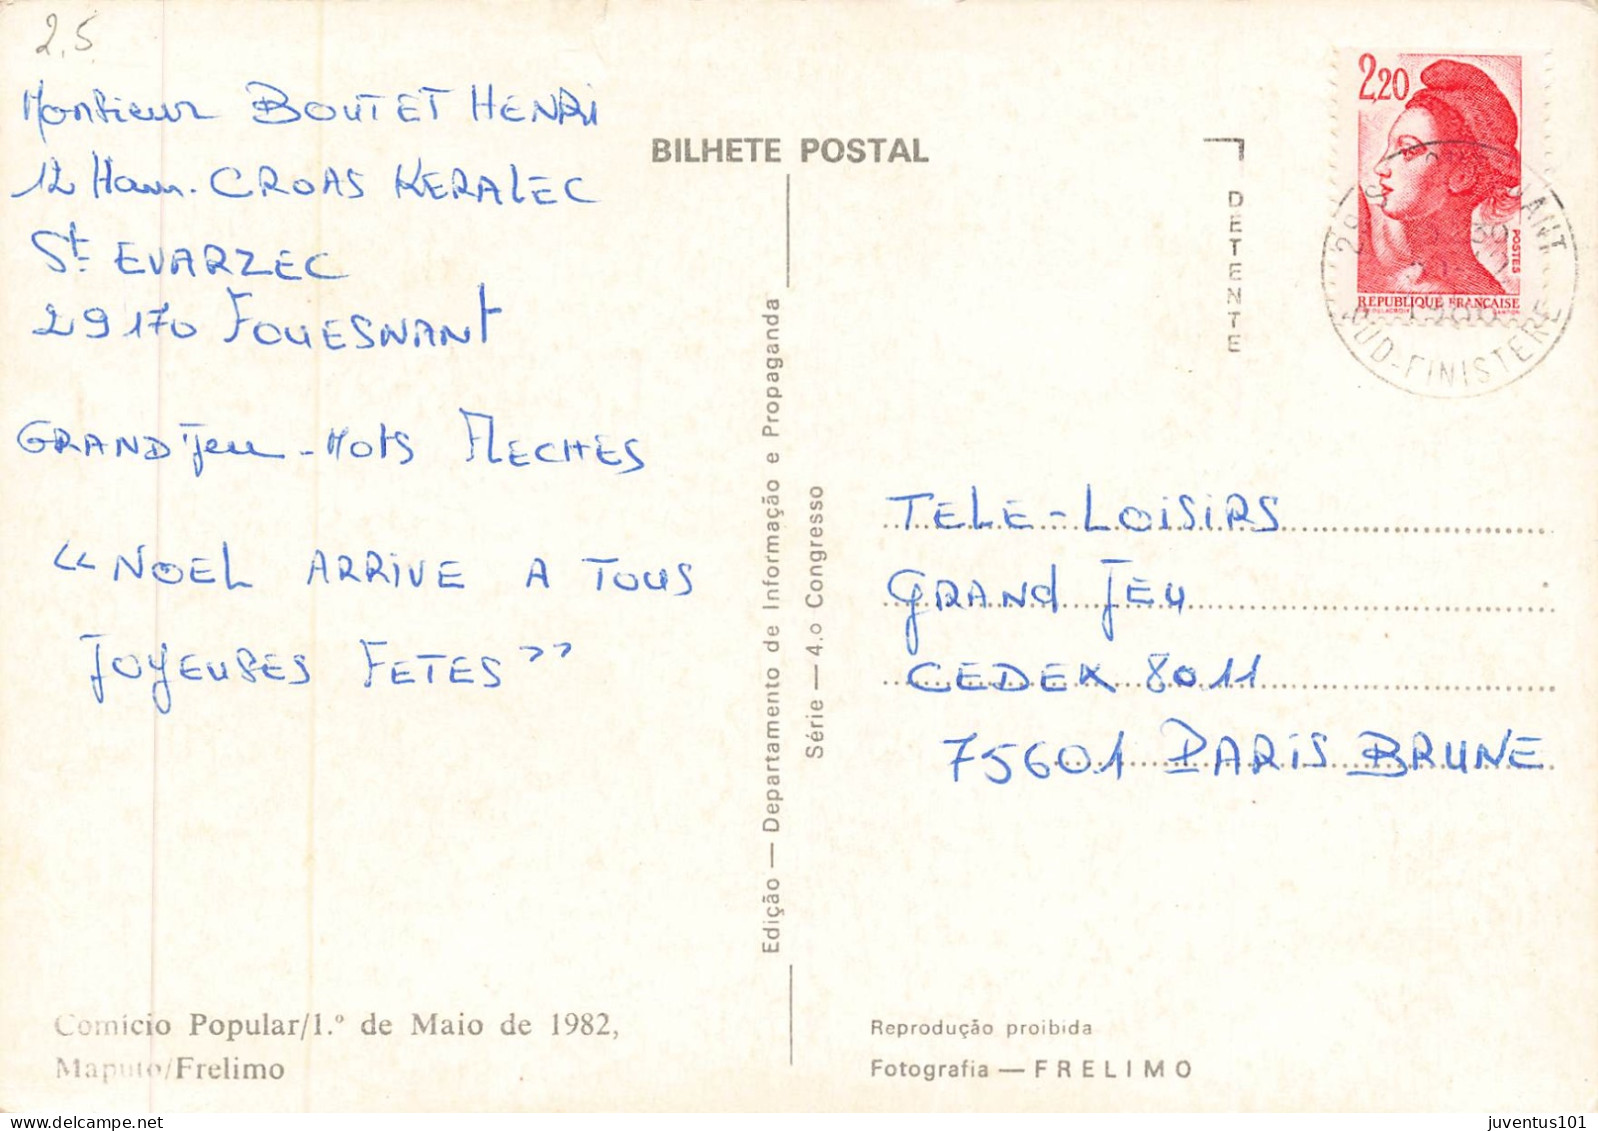 2,5
Monsieur BOUTET HENRI
12 Ham. CROAS KERALEC
St EVARZEC
29170 FOUESNANT
GRAND Jeu - Mots FLECHES
“NOEL ARRIVE A TOUS
JOYEUSES FETES”
Comício Popular/1.º de Maio de 1982,
Maputo/Frelimo
BILHETE POSTAL
Edição — Departamento de Informação e Propaganda
Série — 4.o Congresso
DETENTE
2,20
POSTES
REPUBLIQUE FRANÇAISE
SUD-FINISTERE
TELE-LOISIRS
GRAND JEU
CEDEX 8011
75601 PARIS BRUNE
Reprodução proibida
Fotografia — FRELIMO
juventus101